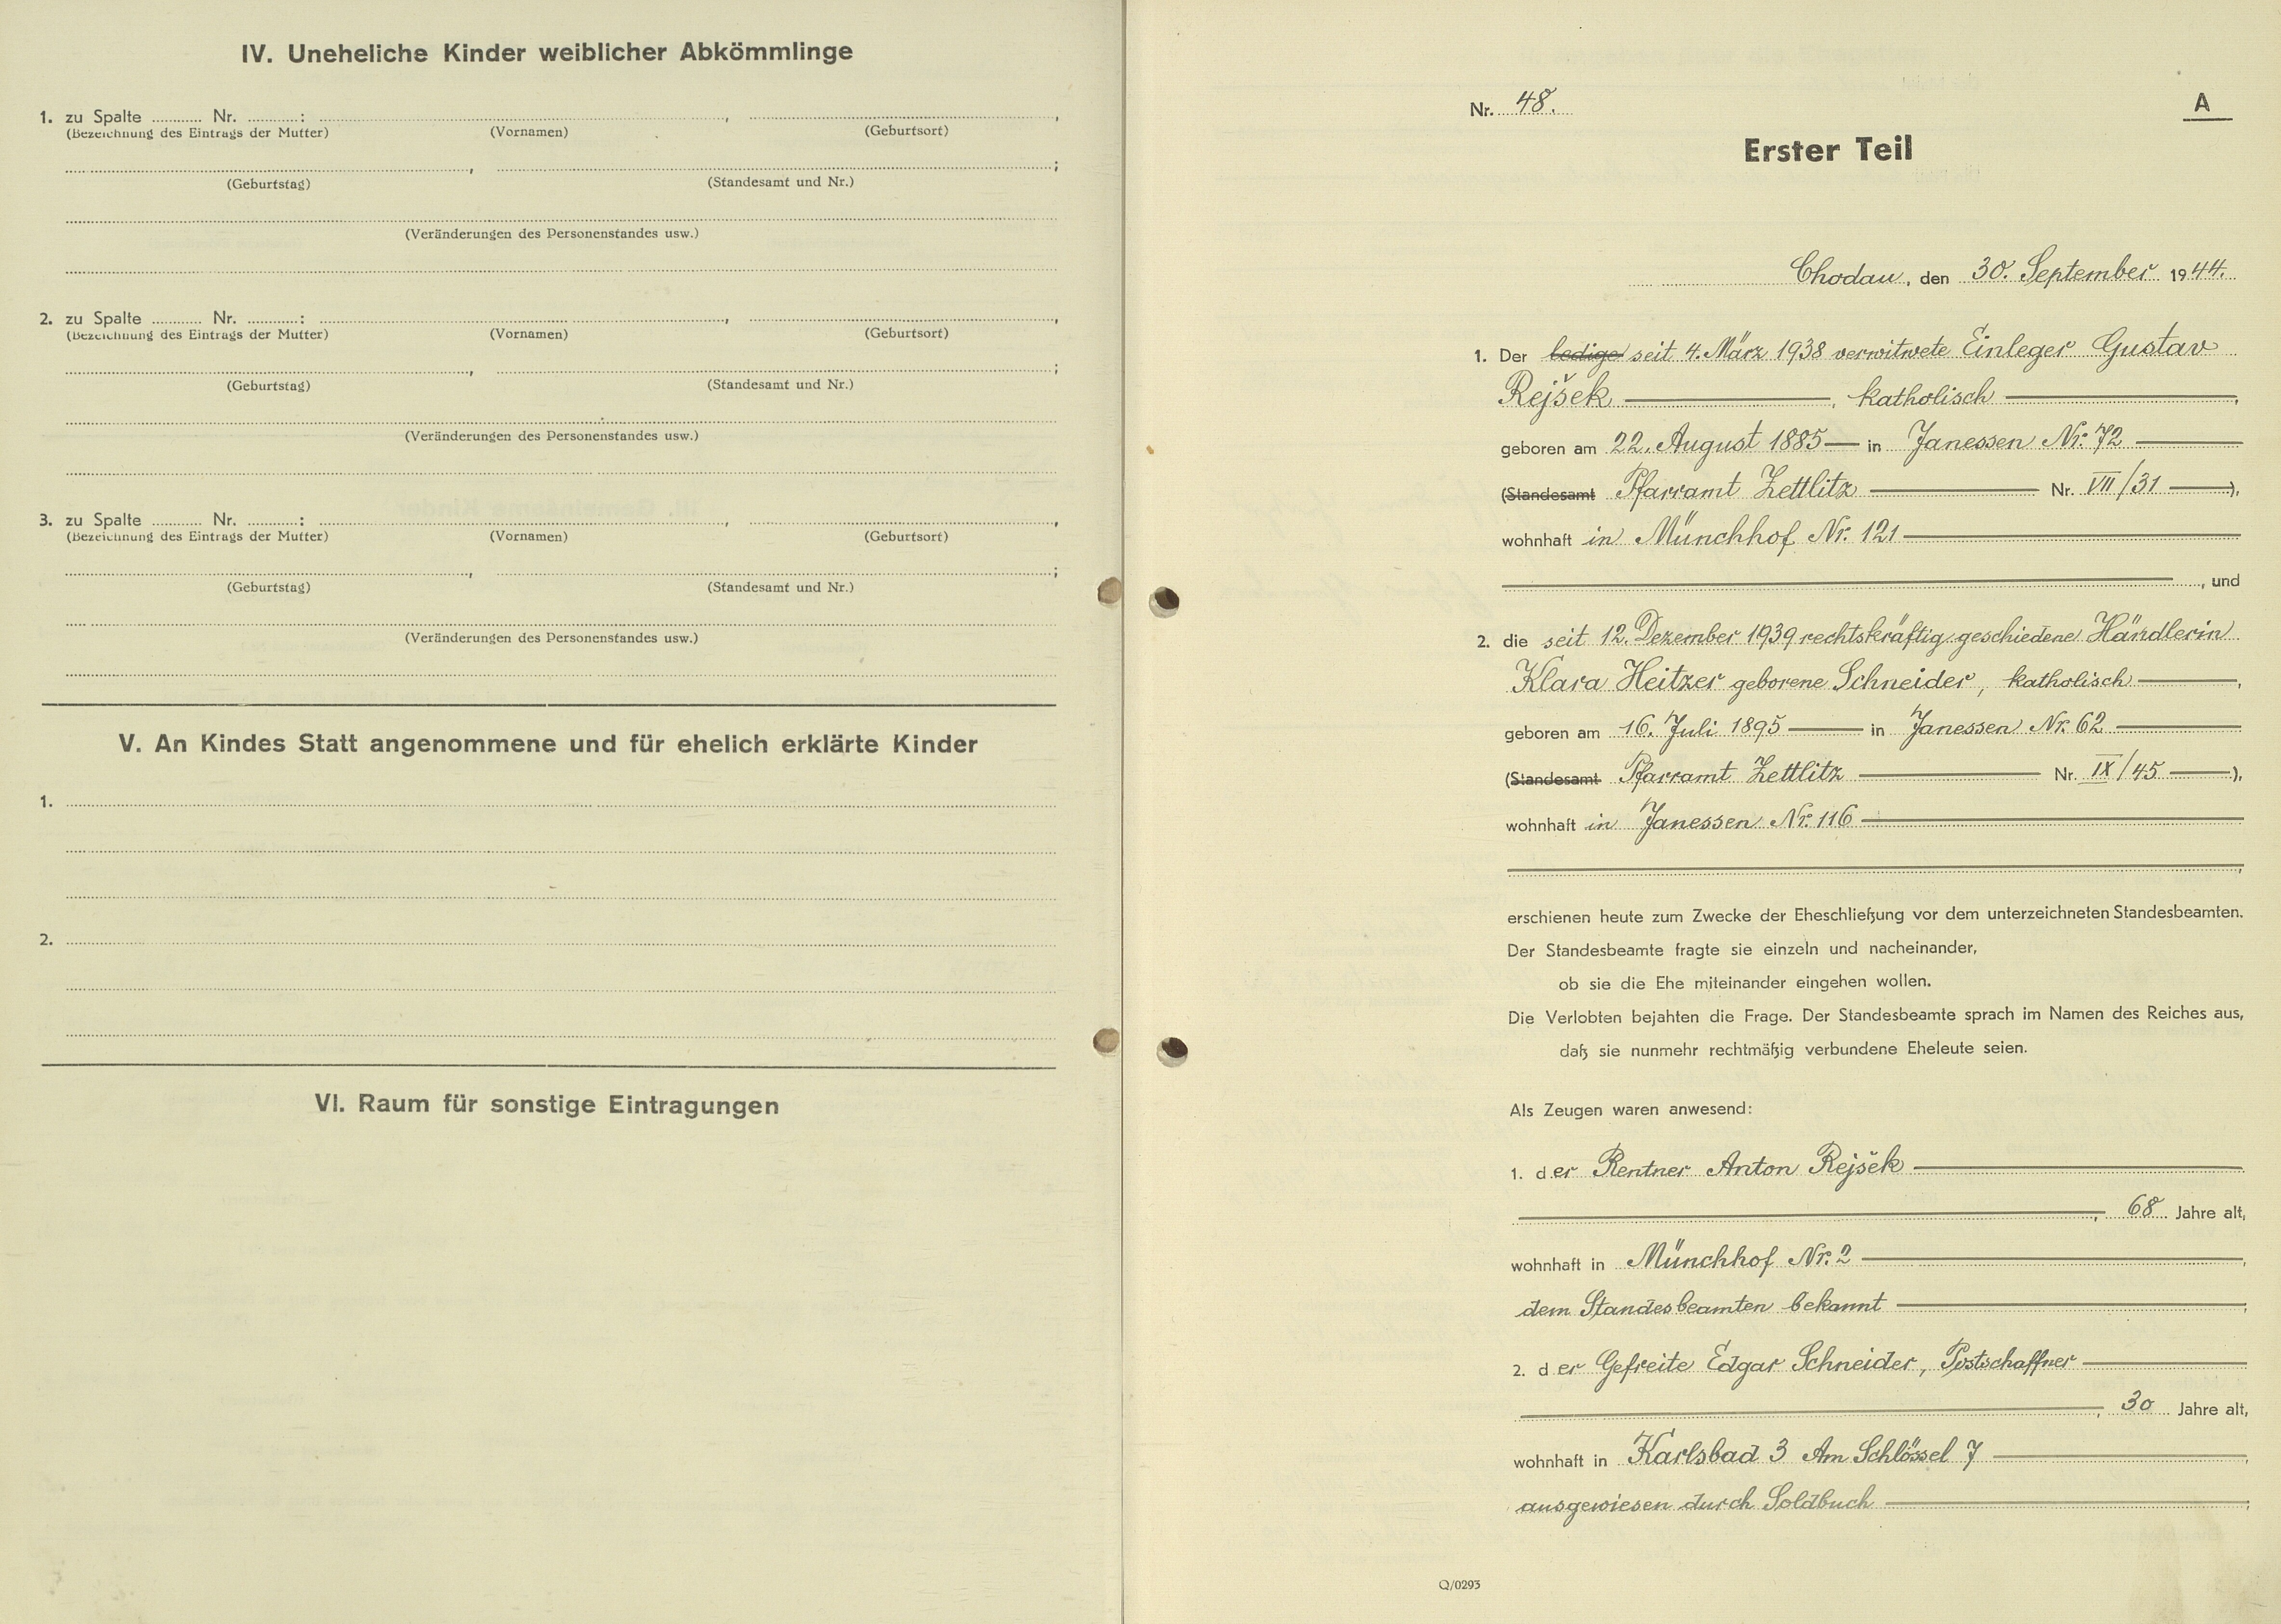 IV. Uneheliche Kinder weiblicher Abkömmlinge
1. zu Spalte ........... Nr. ..........: ........................................, ........................................,
(Bezeichnung des Eintrags der Mutter) (Vornamen) (Geburtsort)
........................................, ........................................;
(Geburtstag) (Standesamt und Nr.)
(Veränderungen des Personenstandes usw.)
2. zu Spalte ........... Nr. ..........: ........................................, ........................................,
(Bezeichnung des Eintrags der Mutter) (Vornamen) (Geburtsort)
........................................, ........................................;
(Geburtstag) (Standesamt und Nr.)
(Veränderungen des Personenstandes usw.)
3. zu Spalte ........... Nr. ..........: ........................................, ........................................,
(Bezeichnung des Eintrags der Mutter) (Vornamen) (Geburtsort)
........................................, ........................................;
(Geburtstag) (Standesamt und Nr.)
(Veränderungen des Personenstandes usw.)
V. An Kindes Statt angenommene und für ehelich erklärte Kinder
1.
2.
VI. Raum für sonstige Eintragungen
Nr. 48. A
Erster Teil
Chodau, den 30. September 1944.
1. Der ledige seit 4. März 1938 verwitwete Einleger Gustav
Rejšek, katholisch,
geboren am 22. August 1885 in Janessen Nr. 72
(Standesamt Pfarramt Zettlitz Nr. VII/31),
wohnhaft in Münchhof Nr. 121
, und
2. die seit 12. Dezember 1939 rechtskräftig geschiedene Händlerin
Klara Heitzer geborene Schneider, katholisch,
geboren am 16. Juli 1895 in Janessen Nr. 62
(Standesamt Pfarramt Zettlitz Nr. IX/45),
wohnhaft in Janessen Nr. 116
,
erschienen heute zum Zwecke der Eheschließung vor dem unterzeichneten Standesbeamten.
Der Standesbeamte fragte sie einzeln und nacheinander,
ob sie die Ehe miteinander eingehen wollen.
Die Verlobten bejahten die Frage. Der Standesbeamte sprach im Namen des Reiches aus,
daß sie nunmehr rechtmäßig verbundene Eheleute seien.
Als Zeugen waren anwesend:
1. der Rentner Anton Rejšek
, 68 Jahre alt,
wohnhaft in Münchhof Nr. 2,
dem Standesbeamten bekannt;
2. der Gefreite Edgar Schneider, Postschaffner
, 30 Jahre alt,
wohnhaft in Karlsbad 3 Am Schlössel 7,
ausgewiesen durch Soldbuch;
Q/0293